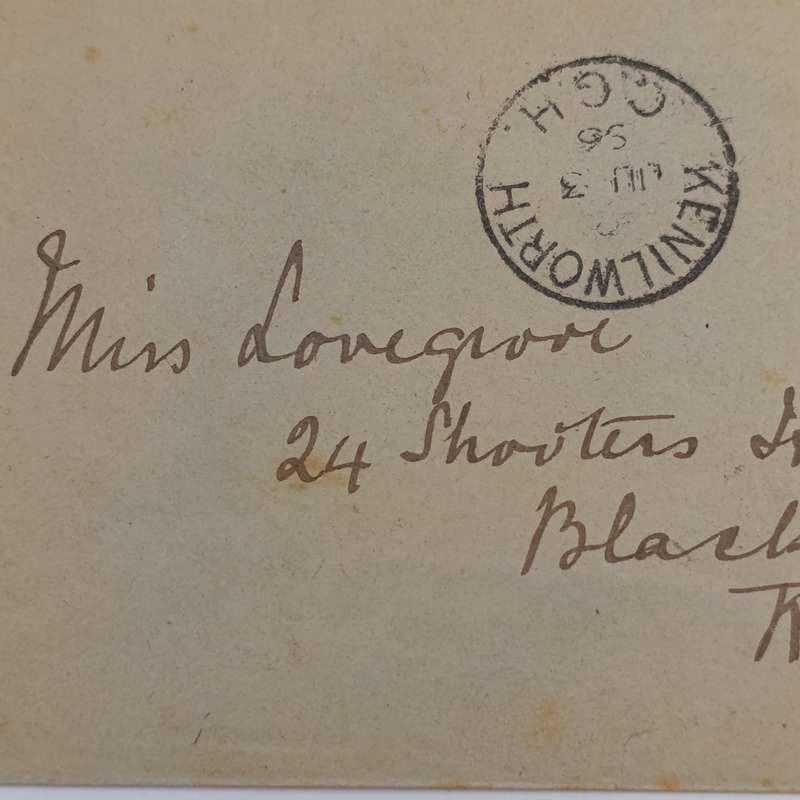 KENILWORTH
C.G.H
JU 3
96
Miss Lovegrove
24 Shooters
Black
K